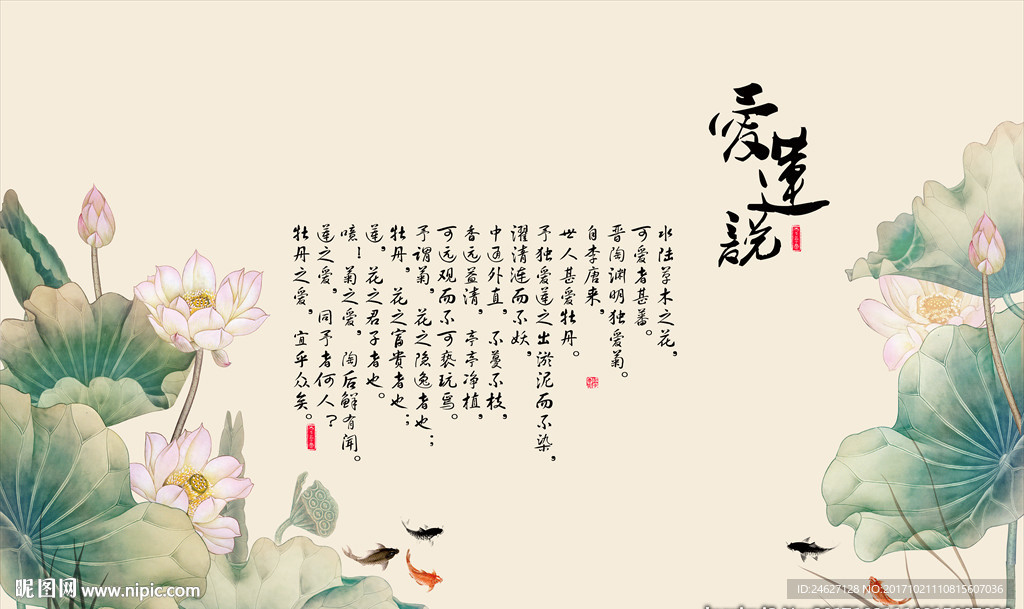 愛蓮説
水陆草木之花，
可爱者甚蕃。
晋陶渊明独爱菊。
自李唐来，
世人甚爱牡丹。
予独爱莲之出淤泥而不染，
濯清涟而不妖，
中通外直，不蔓不枝，
香远益清，亭亭净植，
可远观而不可亵玩焉。
予谓菊，花之隐逸者也；
牡丹，花之富贵者也；
莲，花之君子者也。
噫！菊之爱，陶后鲜有闻。
莲之爱，同予者何人？
牡丹之爱，宜乎众矣。
昵图网 www.nipic.com
ID:24627128 NO:20171021110815607036